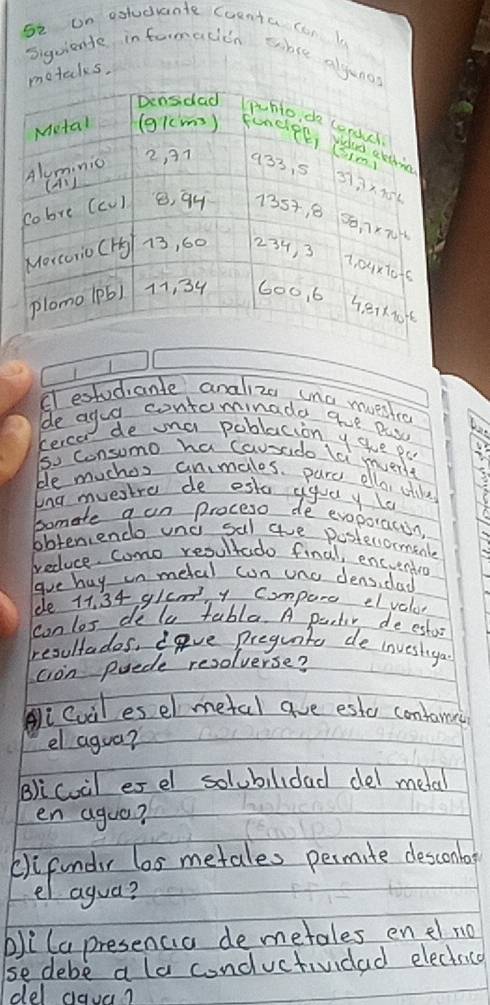 52 un estudiante cuenta con la
siguiente información sobre algunos
metales.
Metal Densidad (g/cm3) punto de función (k) conduct. vidad electrica (S/m)
Aluminio (Al) 2,71 933,5 37,7x10-6
Cobre (cu) 8,94 1357,8 58,7x10-6
Mercurio (Hg) 13,60 234,3 1,04x10-6
plomo (pb) 11,34 600,6 4,81x10-6
El estudiante analiza una muestra
de agua contaminada que pasa
cerca de una poblacion y que por
su consumo ha causado la muerte
de muchos animales. para ello, utiliza
una muestra de esta agua y la
somete a un proceso de evaporación,
obteniendo una sal que posteriormente
reduce. Como resultado final, encuentra
que hay un metal con una densidad
de 11,34 g/cm3, y compara el valor
con los de la tabla. A partir de estos
resultados, ¿que pregunta de investiga-
ción puede resolverse?
A) ¿Cuál es el metal que esta contamina
el agua?
B) ¿cuál es el solubilidad del metal
en agua?
c) ¿fundir los metales permite descontas
el agua?
D) ¿La presencia de metales en el rio
se debe a la conductividad electrica
del agua?